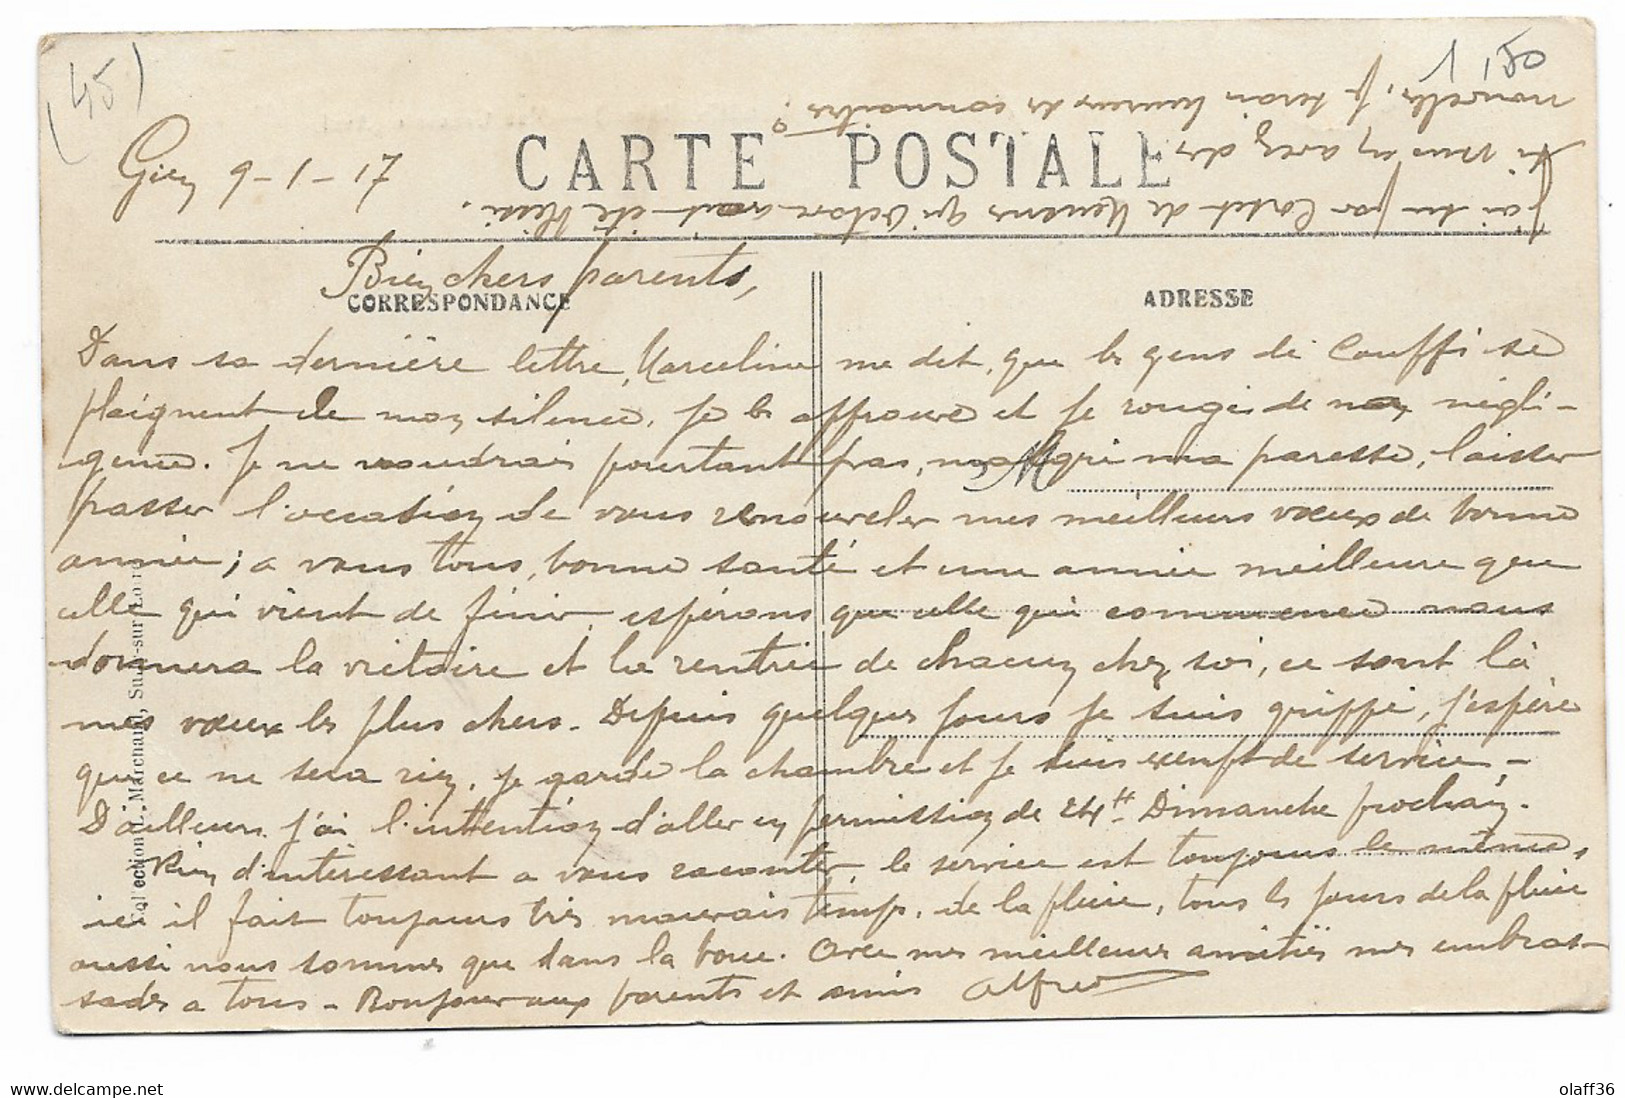 (45)
1,50
Gien 9-1-17
CARTE POSTALE
J'ai su par Castet de qu'Octon avait été blessé.
Si vous en avez des
nouvelles, je serais heureux de connaitre ?
Bien chers parents,
CORRESPONDANCE
ADRESSE
Dans sa dernière lettre, Marceline me dit, que les gens de Couffi se
plaignent de mon silence. Je les approuve et je rougis de ma négli-
gence. Je ne voudrais pourtant pas, malgré ma paresse, laisser
passer l'occasion de vous renouveler mes meilleurs vœux de bonne
année ; a vous tous, bonne santé et une année meilleure que
celle qui vient de finir, espérons que celle qui commence nous
donnera la victoire et la rentrée de chacun chez soi, ce sont là
mes vœux les plus chers. Depuis quelques jours je suis grippé, j'espère
que ce ne sera rien. Je garde la chambre et je suis exempt de service -
D'ailleurs j'ai l'intention d'aller en permission de 24H Dimanche prochain.
Rien d'intéressant a vous raconter, le service est toujours le même,
ici il fait toujours très mauvais temps, de la pluie, tous les jours de la pluie
aussi nous sommes que dans la boue. Avec mes meilleures amitiés mes embras-
sades a tous - Bonjour aux parents et amis Alfred
Collection L. Marchand, Sully-sur-Loire
olaff36